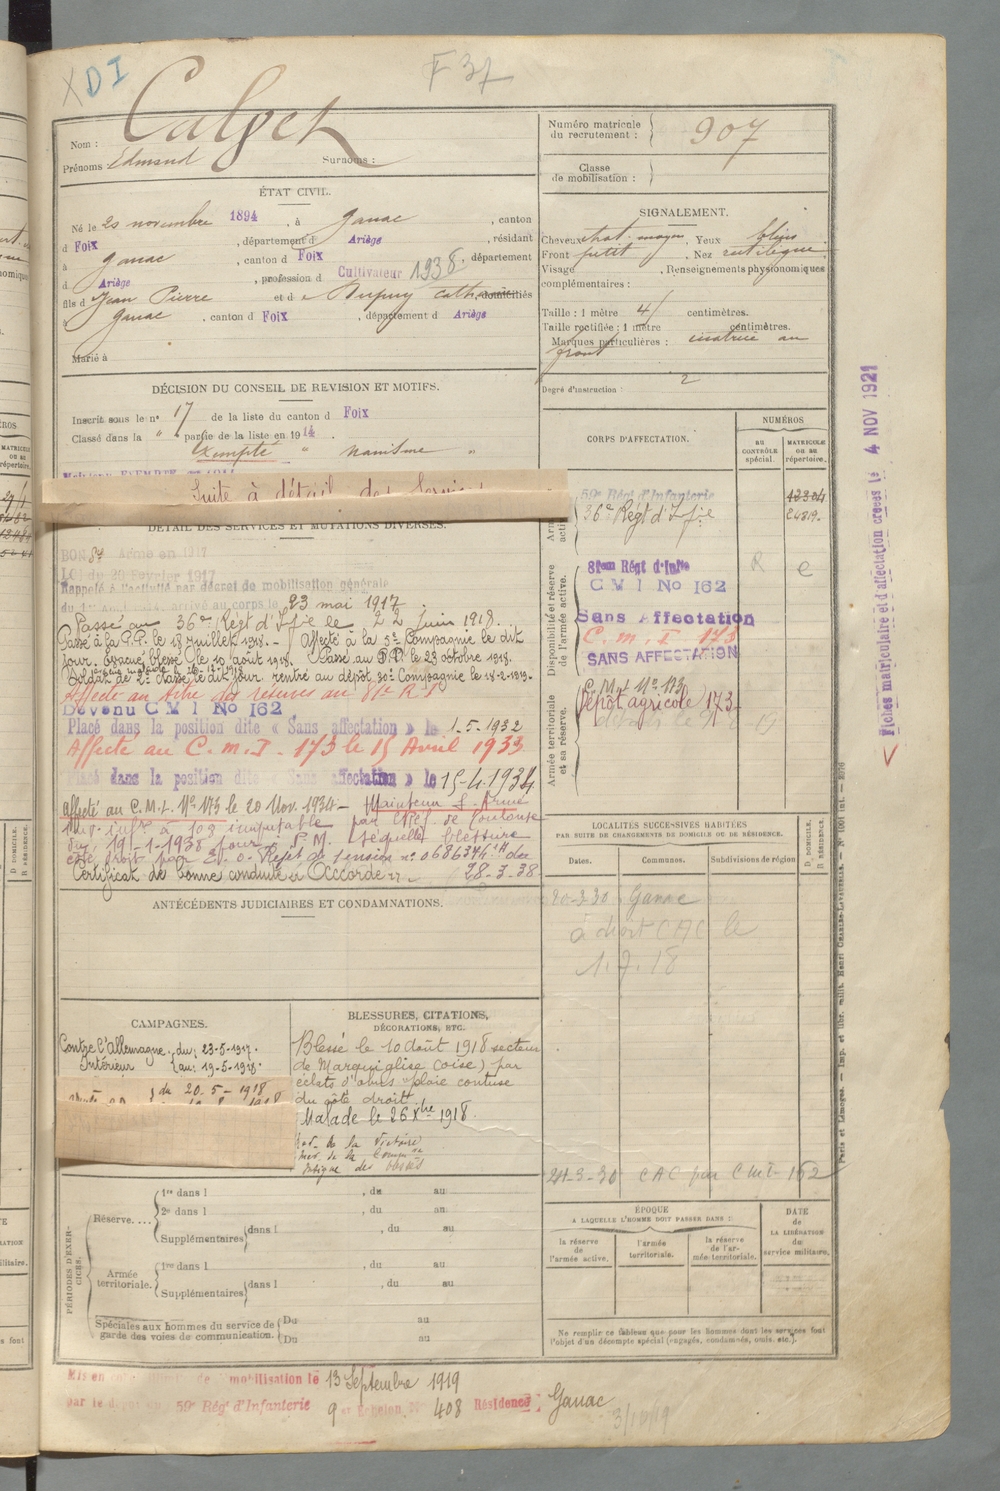 X DI
F 37
Nom : Calvet
Prénoms Edmond Surnoms :
Numéro matricule du recrutement : 907
Classe de mobilisation :
ÉTAT CIVIL.
Né le 20 novembre 1894, à Ganac, canton
d Foix, département d Ariège, résidant
à Ganac, canton d Foix, département
d Ariège, profession d Cultivateur 1938
fils d Jean Pierre et d Dupuy Cath domiciliés
à Ganac, canton d Foix, département d Ariège
Marié à
SIGNALEMENT.
Cheveux chat. moyen, Yeux bleus
Front petit, Nez rectiligne
Visage , Renseignements physionomiques
complémentaires :
Taille : 1 mètre 4/ centimètres.
Taille rectifiée : 1 mètre centimètres.
Marques particulières : cicatrice au
front
Degré d'instruction : 2
DÉCISION DU CONSEIL DE REVISION ET MOTIFS.
Inscrit sous le n° 17 de la liste du canton d Foix
Classé dans la " partie de la liste en 1914.
Exempté " nanisme "
Suite à détail des Services
DÉTAIL DES SERVICES ET MUTATIONS DIVERSES.
BON Sce Armé en 1917
LOI du 20 Février 1917
Rappelé à l'activité par décret de mobilisation générale
du 1er Août 1914, arrivé au corps le 23 mai 1917
Passé au 36e Régt d'Ifie le 22 juin 1918.
Passé à la P.P. le 18 juillet 1918. - Affecté à la 5e Compagnie le dit
jour. Evacué blessé le 10 août 1918. Passé au P.P. le 23 octobre 1918.
Soldat de 2e classe le dit jour. rentré au dépôt 30e Compagnie le 18-2-1919.
Affecté au des réserves au 81e R.I
Devenu C M I No 162
Placé dans la position dite « Sans affectation » le 1-5-1932
Affecté au C.M.I. 173 le 15 Avril 1933
Placé dans la position dite « Sans affectation » le 15.4.1934
Affecté au C.M.I. No 173 le 20 Nov. 1934 - Maintenu S. Armé
Inv. infre à 10% imputable par C.Réf. de Toulouse
du 19-1-1938 pour P.M. séquelles blessure
côté droit par E.O. Rejet de pension n° 0686374 du
Certificat de bonne conduite "Accordé" 28-3-38
CORPS D'AFFECTATION.
NUMÉROS
au CONTRÔLE spécial.
MATRICULE ou au répertoire.
Armée active.
59e Régt d'Infanterie 12304
36e Régt d'Ifie 24819.
Disponibilité et réserve de l'armée active.
81eme Régt d'Infie R e
C M I No 162
Sans Affectation
C. m. I 173
SANS AFFECTATION
Armée territoriale et sa réserve.
C.M.I. No 173
Dépôt agricole 173
Fiches matriculaire et d'affectation créées le 4 NOV 1921
ANTÉCÉDENTS JUDICIAIRES ET CONDAMNATIONS.
LOCALITÉS SUCCESSIVES HABITÉES
PAR SUITE DE CHANGEMENTS DE DOMICILE OU DE RÉSIDENCE.
Dates. Communes. Subdivisions de région
D. DOMICILE. R. RÉSIDENCE.
20-3-30 Ganac
à droit CAC le
1.7.18
24-3-30 CAC par Cmi 162
CAMPAGNES.
Contre l'Allemagne, du: 23-5-1917.
Intérieur au: 19-5-1918.
du 20.5-1918
BLESSURES, CITATIONS,
DÉCORATIONS, ETC.
Blessé le 10 août 1918 secteur
de Marquéglise (Oise) par
éclats d'obus "plaie contuse
du côté droit"
Malade le 26 Xbre 1918.
Méd. de la Victoire
Méd. de la Comm ve
Insigne des blessés
PÉRIODES D'EXERCICES.
Réserve....
1re dans l , du au
2e dans l , du au
Supplémentaires dans l , du au
Armée territoriale.
1re dans l , du au
Supplémentaires dans l , du au
Spéciales aux hommes du service de
garde des voies de communication.
Du au
Du au
ÉPOQUE
A LAQUELLE L'HOMME DOIT PASSER DANS :
la réserve de l'armée active.
l'armée territoriale.
la réserve de l'armée territoriale.
DATE de LA LIBÉRATION du service militaire.
Ne remplir ce tableau que pour les hommes dont les services font
l'objet d'un décompte spécial (engagés, condamnés, omis, etc.).
Paris et Limoges. — Imp. et libr. milit. Henri CHARLES-LAVAUZELLE.
Mis en congé illimité de démobilisation le 13 Septembre 1919
par le dépôt du 59e Régt d'Infanterie 9e Échelon, N° 408 Résidence : Ganac